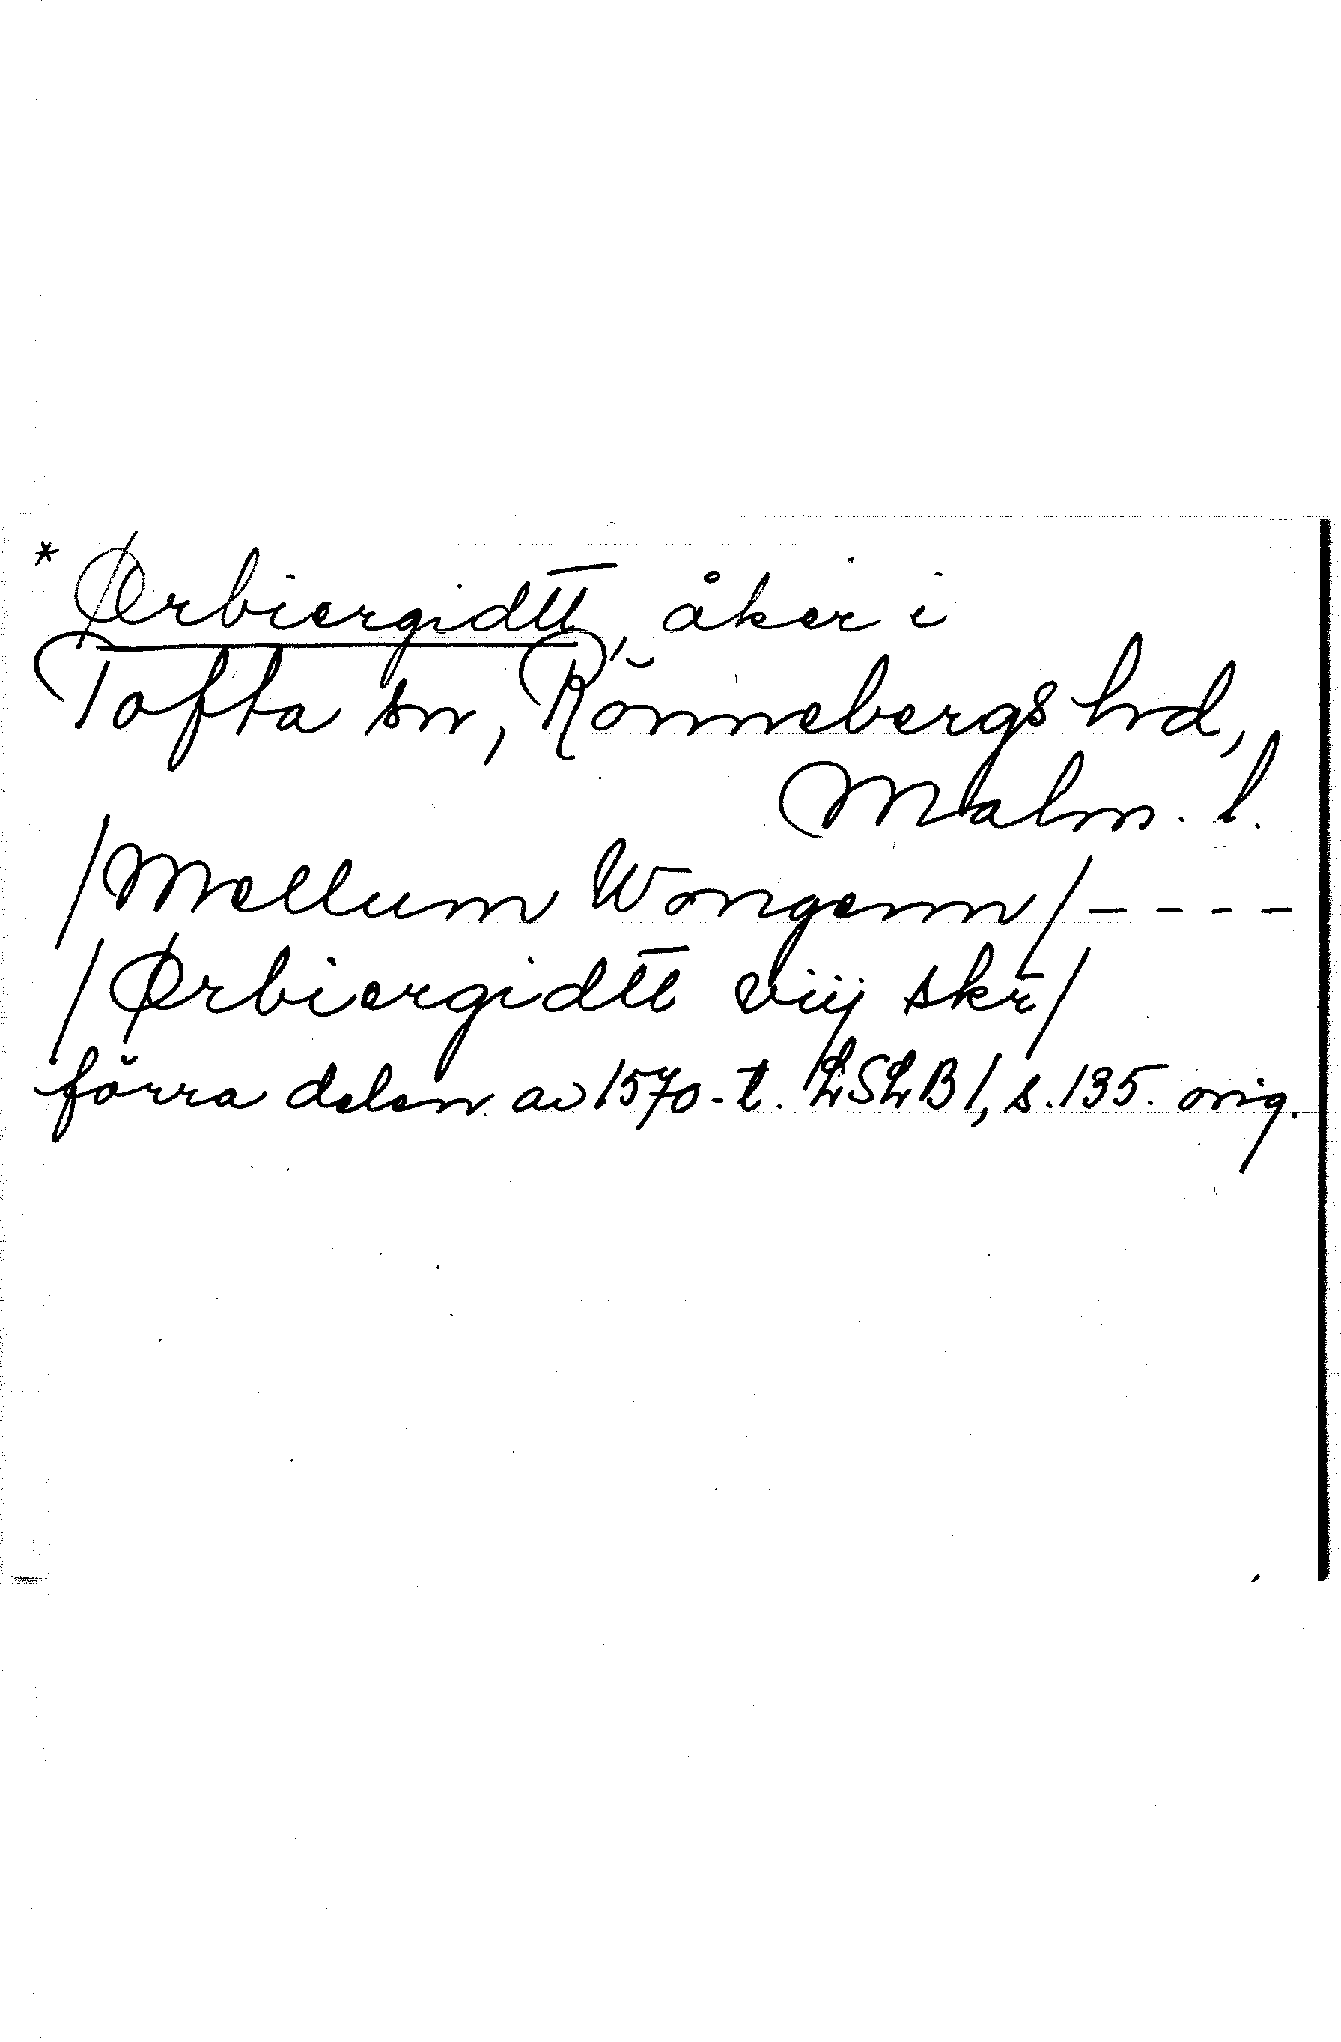 * Ørbiergidtt, åker i
Tofta sn, Rönnebergs hd,
Malm. l.
/Mellum Wongenn/ - - - -
/Ørbiergidtt viij skr̄/
förra delen av 1570-t. LSLB 1, s. 135. orig.